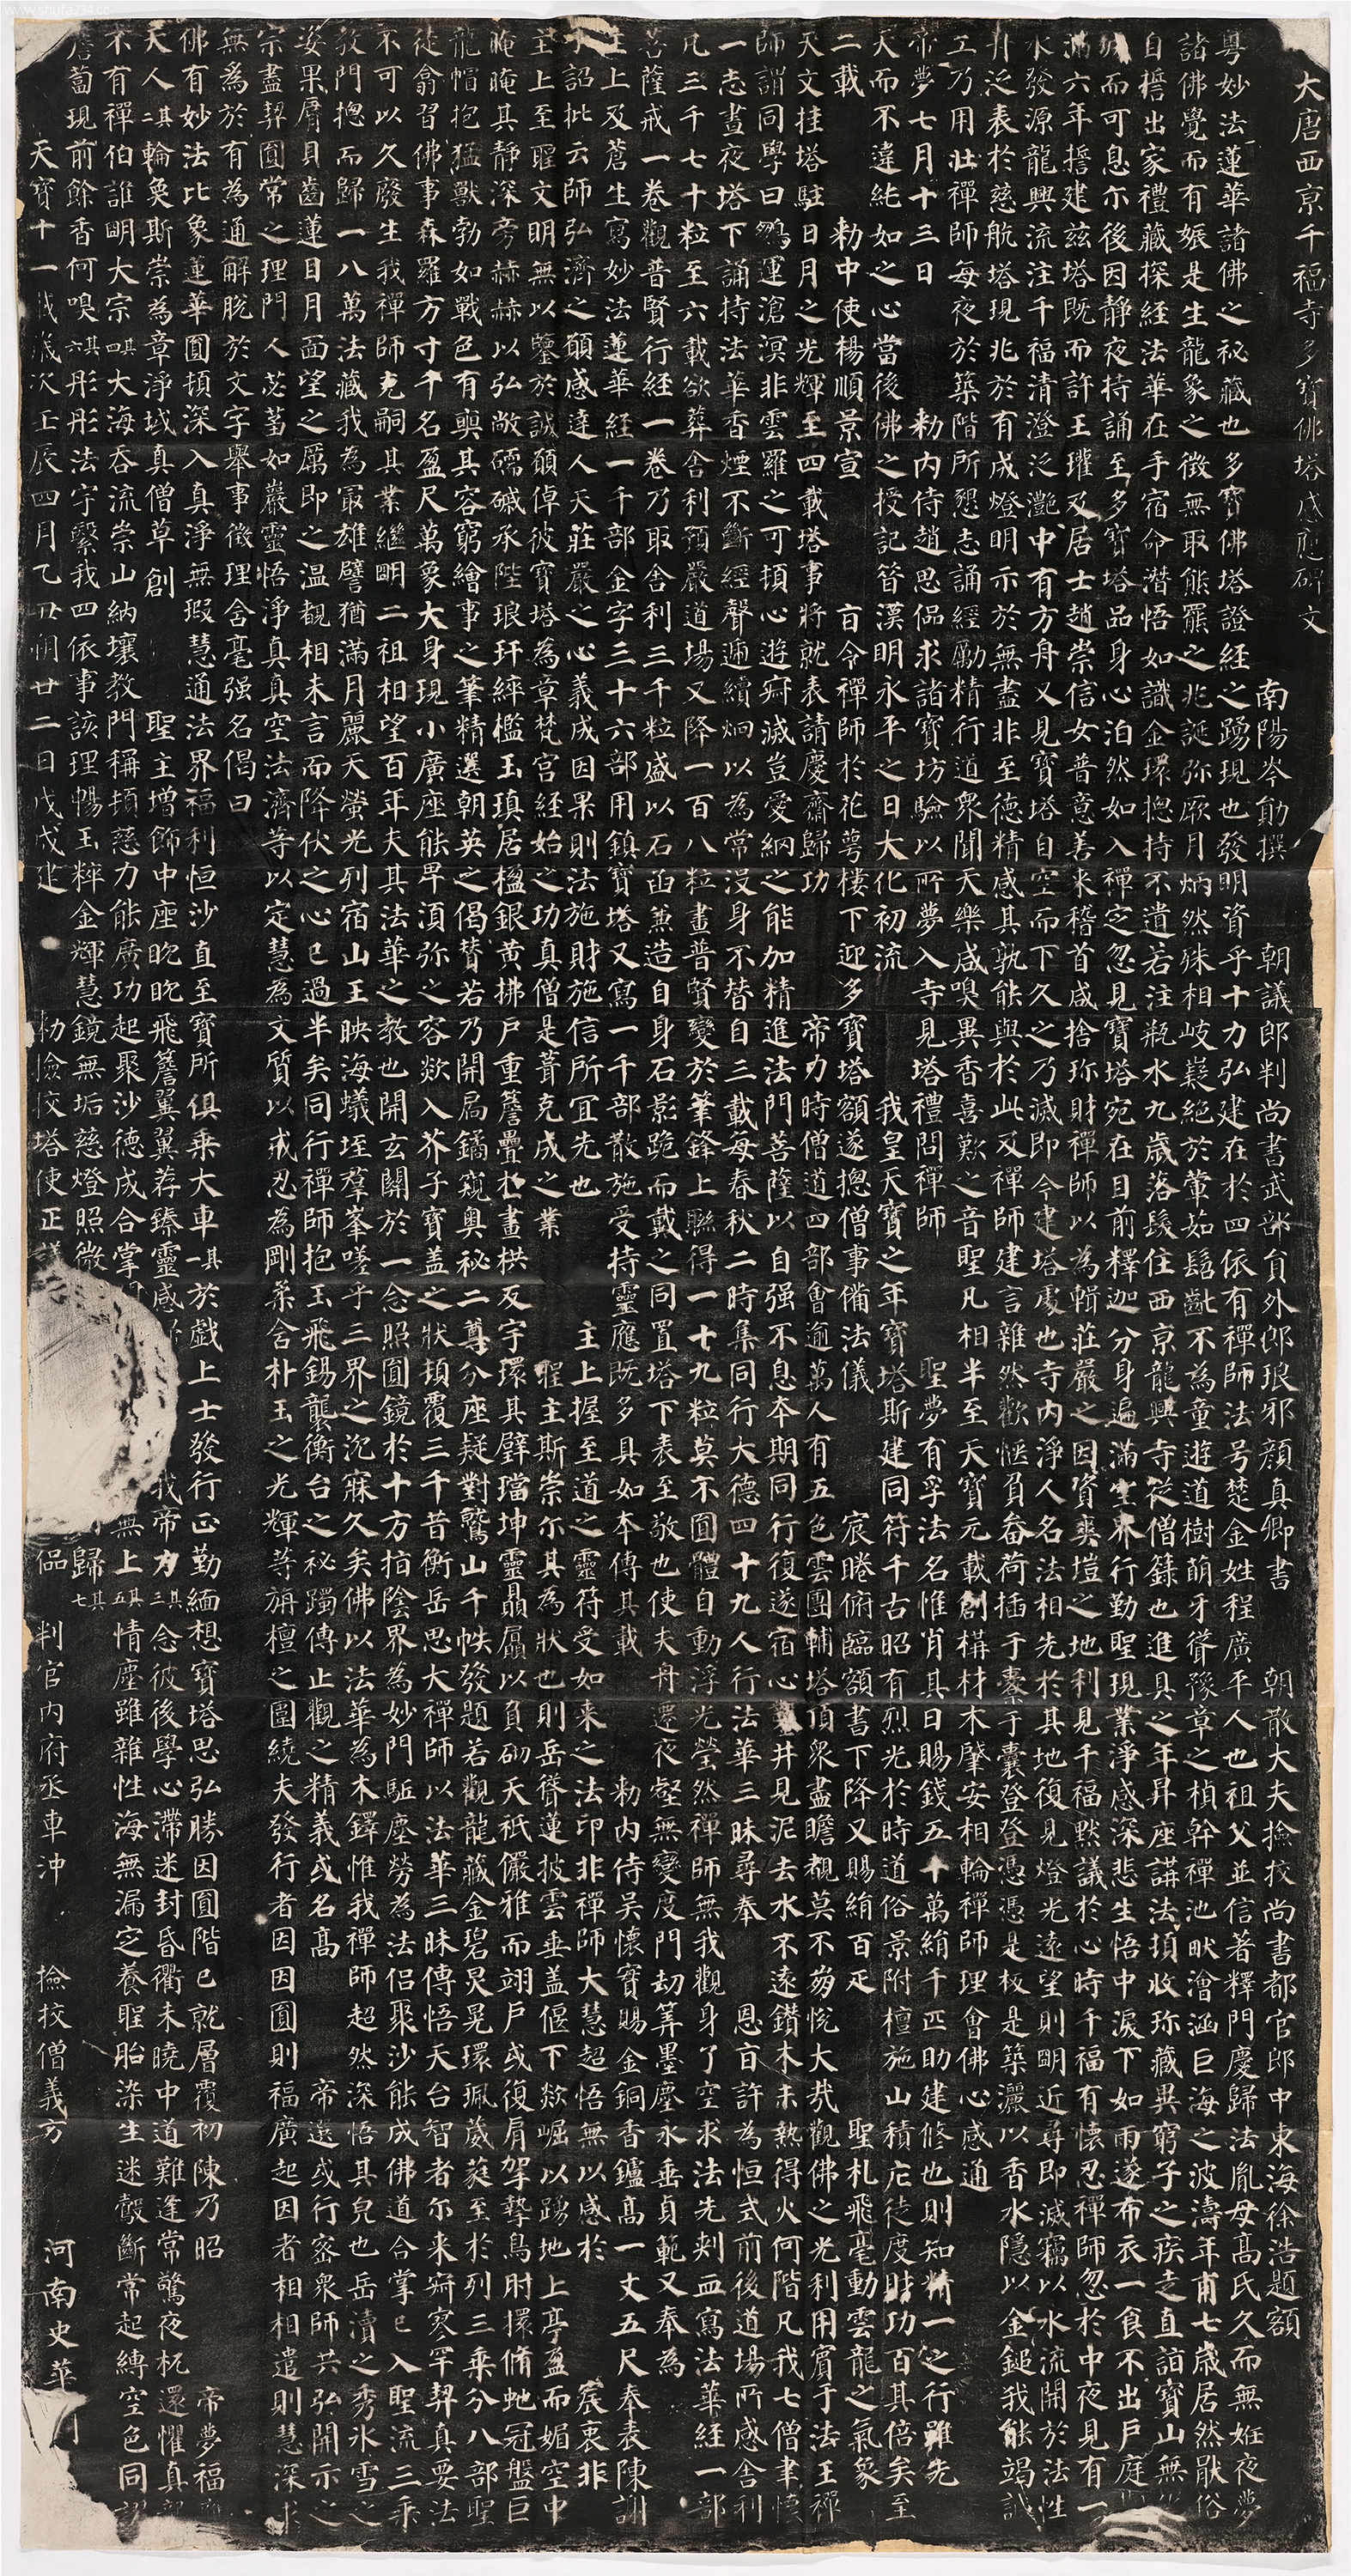 www.shufa234.cc
大唐西京千福寺多寶佛塔感應碑文
南陽岑勛撰 朝議郎判尚書武部員外郎琅邪顏真卿書 朝散大夫撿挍尚書都官郎中東海徐浩題額
粵妙法蓮華諸佛之祕藏也多寶佛塔證經之踴現也發明資乎十力弘建在於四依有禪師法号楚金姓程廣平人也祖父並信著釋門慶歸法胤母高氏久而無姙夜夢
諸佛覺而有娠是生龍象之徵無取熊羆之兆誕弥厥月炳然殊相岐嶷絕於葷茹髫齔不為童遊道樹萌牙聳豫章之楨幹禪池畎澮涵巨海之波濤年甫七歲居然猒俗
自誓出家禮藏探經法華在手宿命潛悟如識金環揔持不遺若注瓶水九歲落髮住西京龍興寺從僧籙也進具之年昇座講法頓收珍藏異窮子之疾走直詣寶山無
城而可息尒後因靜夜持誦至多寶塔品身心泊然如入禪定忽見寶塔宛在目前釋迦分身遍滿空界行勤聖現業淨感深悲生悟中淚下如雨遂布衣一食不出戶庭
滿六年誓建茲塔既而許王瓘及居士趙崇信女普意善来稽首咸捨珎財禪師以為輯莊嚴之因資爽塏之地利見千福默議於心時千福有懷忍禪師忽於中夜見有一
水發源龍興流注千福清澄泛灩中有方舟又見寶塔自空而下久之乃滅即今建塔處也寺內淨人名法相先於其地復見燈光遠望則明近尋即滅竊以水流開於法性
舟泛表於慈航塔現兆於有成燈明示於無盡非至德精感其孰能與於此又禪師建言雜然歡愜負畚荷插于橐于囊登登憑憑是板是築灑以香水隱以金鎚我能竭誠
工乃用壯禪師每夜於築階所懇志誦經勵精行道衆聞天樂咸嗅異香喜歎之音聖凡相半至天寶元載創構材木肇安相輪禪師理會佛心感通
帝夢七月十三日 勑內侍趙思偘求諸寶坊驗以所夢入寺見塔禮問禪師 聖夢有孚法名惟肖其日賜錢五十萬絹千匹助建修也則知精一之行雖先
天而不違純如之心當後佛之授記昔漢明永平之日大化初流 我皇天寶之年寶塔斯建同符千古昭有烈光於時道俗景附檀施山積庀徒度財功百其倍矣至
二載 勑中使楊順景宣 旨令禪師於花萼樓下迎多寶塔額遂揔僧事俻法儀 宸睠俯臨額書下降又賜絹百疋 聖札飛毫動雲龍之氣象
天文挂塔駐日月之光輝至四載塔事將就表請慶齋歸功 帝力時僧道四部會逾萬人有五色雲團輔塔頂衆盡瞻覩莫不崩悅大哉觀佛之光利用賓于法王禪
師謂同學曰鵬運滄溟非雲羅之可頓心遊寂滅豈愛網之能加精進法門菩薩以自强不息本期同行復遂宿心鑿井見泥去水不遠鑽木未熱得火何階凡我七僧聿懷
一志晝夜塔下誦持法華香煙不斷經聲遞續炯以為常没身不替自三載每春秋二時集同行大德四十九人行法華三昧尋奉 恩旨許為恒式前後道場所感舍利
凡三千七十粒至六載欲葬舍利預嚴道場又降一百八粒畫普賢變於筆鋒上聯得一十九粒莫不圓體自動浮光瑩然禪師無我觀身了空求法先刺血寫法華經一部
菩薩戒一卷觀普賢行經一卷乃取舍利三千粒盛以石函兼造自身石影跪而戴之同置塔下表至敬也使夫舟遷夜壑無變度門劫筭墨塵永垂貞範又奉為
主上及蒼生寫妙法蓮華經一千部金字三十六部用鎮寶塔又寫一千部散施受持靈應既多具如本傳其載 勑內侍吳懷實賜金銅香鑪高一丈五尺奉表陳謝
手詔批云師弘濟之願感達人天莊嚴之心義成因果則法施財施信所宜先也 主上握至道之靈符受如来之法印非禪師大慧超悟無以感於 宸衷非
主上至聖文明無以鑒於誠願倬彼寶塔為章梵宮經始之功真僧是葺克成之業 聖主斯崇尒其為狀也則岳聳蓮披雲垂盖偃下欻崛以踴地上亭盈而媚空中
晻晻其靜深旁赫赫以弘敞礝磩承陛琅玕綷檻玉瑱居楹銀黃拂戶重簷疊於畫栱反宇環其璧璫坤靈贔屭以負砌天祇儼雅而翊戶或復肩挐摯鳥肘擐脩虵冠盤巨
龍帽抱猛獸勃如戰色有奭其容窮繪事之筆精選朝英之偈贊若乃開扃鐍窺奧祕二尊分座疑對鷲山千帙發題若觀龍藏金碧炅晃環珮葳蕤至於列三乘分八部聖
徒翕習佛事森羅方寸千名盈尺萬象大身現小廣座能卑須弥之容欻入芥子寶盖之狀頓覆三千昔衡岳思大禪師以法華三昧傳悟天台智者尒来寂寥罕契真要法
不可以久廢生我禪師克嗣其業繼明二祖相望百年夫其法華之教也開玄關於一念照圓鏡於十方指陰界為妙門駈塵勞為法侶聚沙能成佛道合掌已入聖流三乘
教門揔而歸一八萬法藏我為最雄譬猶滿月麗天螢光列宿山王映海蟻垤群峯嗟乎三界之沉寐久矣佛以法華為木鐸惟我禪師超然深悟其皃也岳瀆之秀冰雪之
姿果脣貝齒蓮目月面望之厲即之溫覩相未言而降伏之心已過半矣同行禪師抱玉飛錫襲衡台之祕躅傳止觀之精義或名高 帝選或行密衆師共弘開示之
宗盡契圓常之理門人苾蒭如巖靈悟淨真真空法濟等以定慧為文質以戒忍為剛柔含朴玉之光輝等旃檀之圍繞夫發行者因因圓則福廣起因者相相遣則慧深求
無為於有為通解脫於文字舉事徵理含毫强名偈曰
佛有妙法比象蓮華圓頓深入真淨無瑕慧通法界福利恒沙直至寶所俱乘大車其一於戲上士發行正勤緬想寶塔思弘勝因圓階已就層覆初陳乃昭 帝夢福
天人其二輪奐斯崇為章淨域真僧草創 聖主增飾中座眈眈飛簷翼翼荐臻靈感 我帝力其三念彼後學心滯迷封昏衢未曉中道難逢常驚夜杌還懼真
不有禪伯誰明大宗其四大海吞流崇山納壤教門稱頓慈力能廣功起聚沙德成合掌 無上其五情塵雖雜性海無漏定養聖胎染生迷鷇斷常起縛空色同
薝蔔現前餘香何嗅其六彤彤法宇繄我四依事該理暢玉粹金輝慧鏡無垢慈燈照微 歸其七
天寶十一載歲次壬辰四月乙丑朔廿二日戊戌建 勑撿挍塔使正 偘 判官內府丞車沖 撿挍僧義方 河南史華